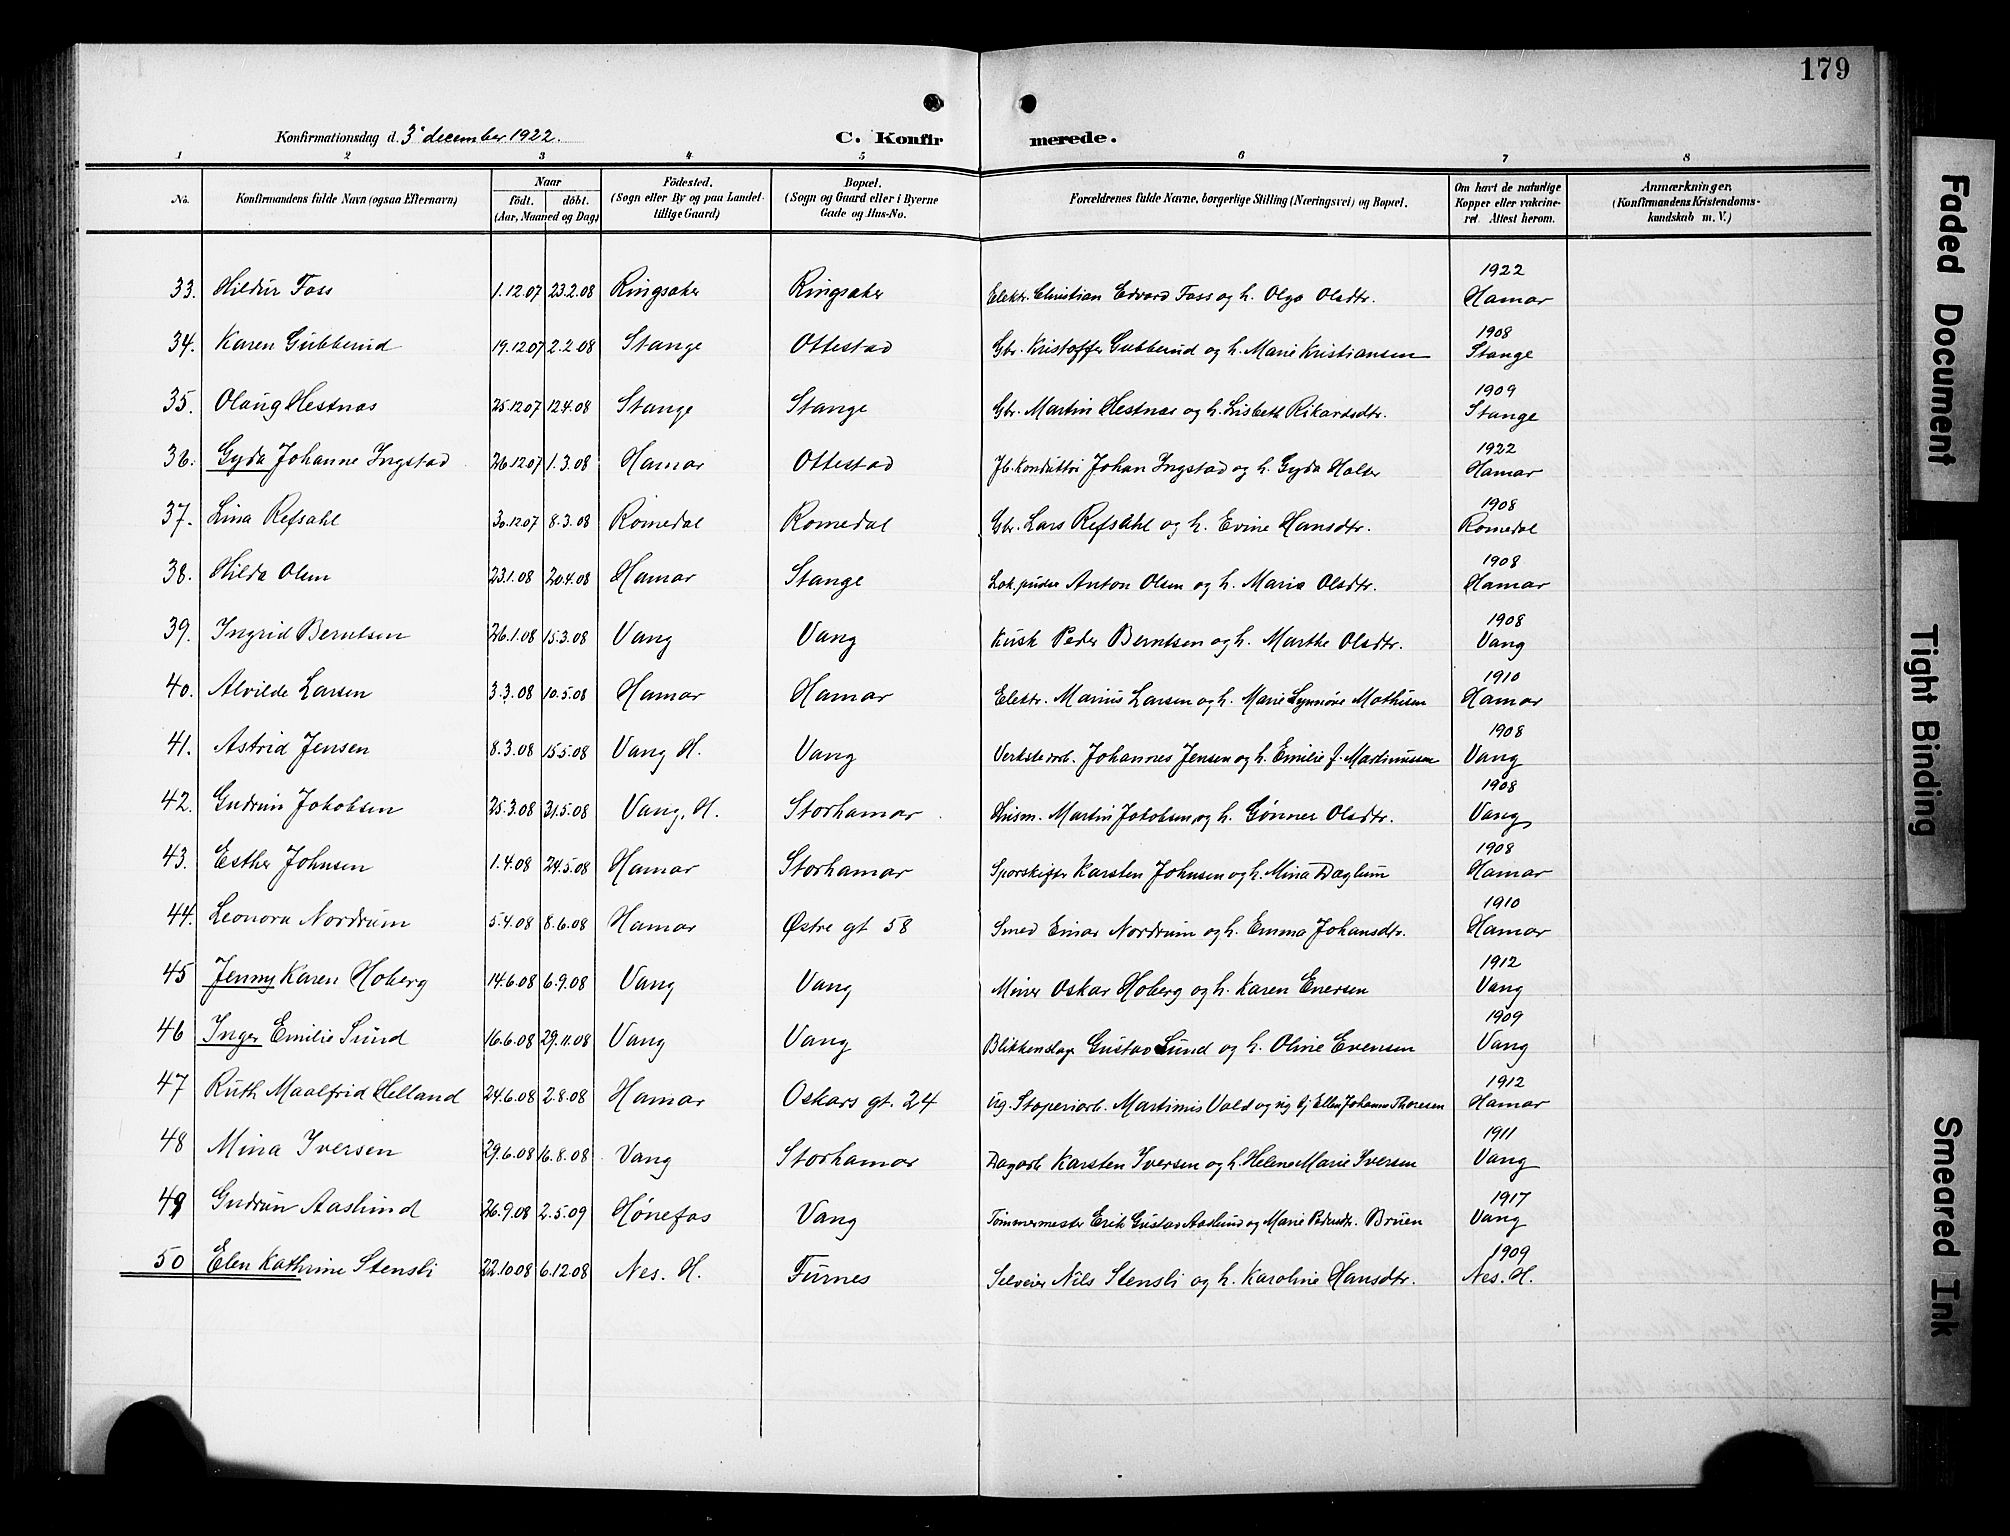 179
Konfirmationsdag d. 3' december 1922.
C. Konfirmerede.
1 2 3 4 5 6 7 8
No. Konfirmandens fulde Navn (ogsaa Efternavn) Naar födt. döbt. (Aar, Maaned og Dag) Födested. (Sogn eller By og paa Landet tillige Gaard) Bopæl. (Sogn og Gaard eller i Byerne Gade og Hus-No. Forældrenes fulde Navne, borgerlige Stilling (Næringsvei) og Bopæl. Om havt de naturlige Kopper eller vakcineret. Attest herom. Anmærkninger. (Konfirmandens Kristendomskundskab m. V.)
33. Hildur Foss 1.12.07 23.2.08 Ringsaker Ringsaker Elektr. Christian Edvard Foss og h. Olga Olsdtr. 1922 Hamar
34. Karen Gubberud 19.12.07 2.2.08 Stange Ottestad Gbr. Kristoffer Gubberud og h. Marie Kristiansen 1908 Stange
35. Olaug Hestnæs 25.12.07 12.4.08 Stange Stange Gbr. Martin Hestnæs og h. Lisbeth Rikardsdtr. 1909 Stange
36. Gyda Johanne Ingstad 26.12.07 1.3.08 Hamar Ottestad Jb. Konduktör Johan Ingstad og h. Gyda Holter 1922 Hamar
37. Lina Refsahl 30.12.07 8.3.08 Romedal Romedal Gbr. Lars Refsahl og h. Evine Hansdtr. 1908 Romedal
38. Hilda Olsen 23.1.08 20.4.08 Hamar Stange Lok.pudser Anton Olsen og h. Maria Olsdtr. 1908 Hamar
39. Ingrid Berntsen 26.1.08 15.3.08 Vang Vang Kusk Peder Berntsen og h. Marthe Olsdtr. 1908 Vang
40. Alvilde Larsen 3.3.08 10.5.08 Hamar Hamar Elektr. Marius Larsen og h. Marie Synnøve Mathisen 1910 Hamar
41. Astrid Jensen 8.3.08 15.5.08 Vang H. Vang Verkstedarb. Johannes Jensen og h. Emilie f. Martinussen 1908 Vang
42. Gudrun Jakobsen 25.3.08 31.5.08 Vang, H. Storhamar Husm. Martin Jakobsen og h. Gønner Olsdtr. 1908 Vang
43. Esther Johnsen 1.4.08 24.5.08 Hamar Storhamar Sporskifter Karsten Johnsen og h. Mina Dæhlum 1908 Hamar
44. Leonora Nordrum 5.4.08 8.6.08 Hamar Østre gt 58 Smed Einar Nordrum og h. Emma Johansdtr. 1910 Hamar
45 Jenny Karen Hoberg 14.6.08 6.9.08 Vang Vang Miner Oskar Hoberg og h. Karen Enersen 1912 Vang
46 Inger Emilie Sund 16.6.08 29.11.08 Vang Vang Blikkenslager Gustav Sund og h. Oline Evensen 1909 Vang
47 Ruth Maalfrid Helland 24.6.08 2.8.08 Hamar Oskars gt. 24 Ug. Støperiarb. Martinius Vold og ug. tj. Ellen Johanne Thoresen 1912 Hamar
48 Mina Iversen 29.6.08 16.8.08 Vang Storhamar Dagarb Karsten Iversen og h. Helene Marie Iversen 1911 Vang
49 Gudrun Aaslund 26.9.08 2.5.09 Hønefos Vang Tømmermester Erik Gustav Aaslund og Marie Pedersdr. Bruen 1917 Vang
50 Elen Kathrine Stensli 22.10.08 6.12.08 Nes. H. Furnes Selveier Nils Stensli og h. Karoline Hansdtr. 1909 Nes. H.
Faded Document
Tight Binding
Smeared Ink